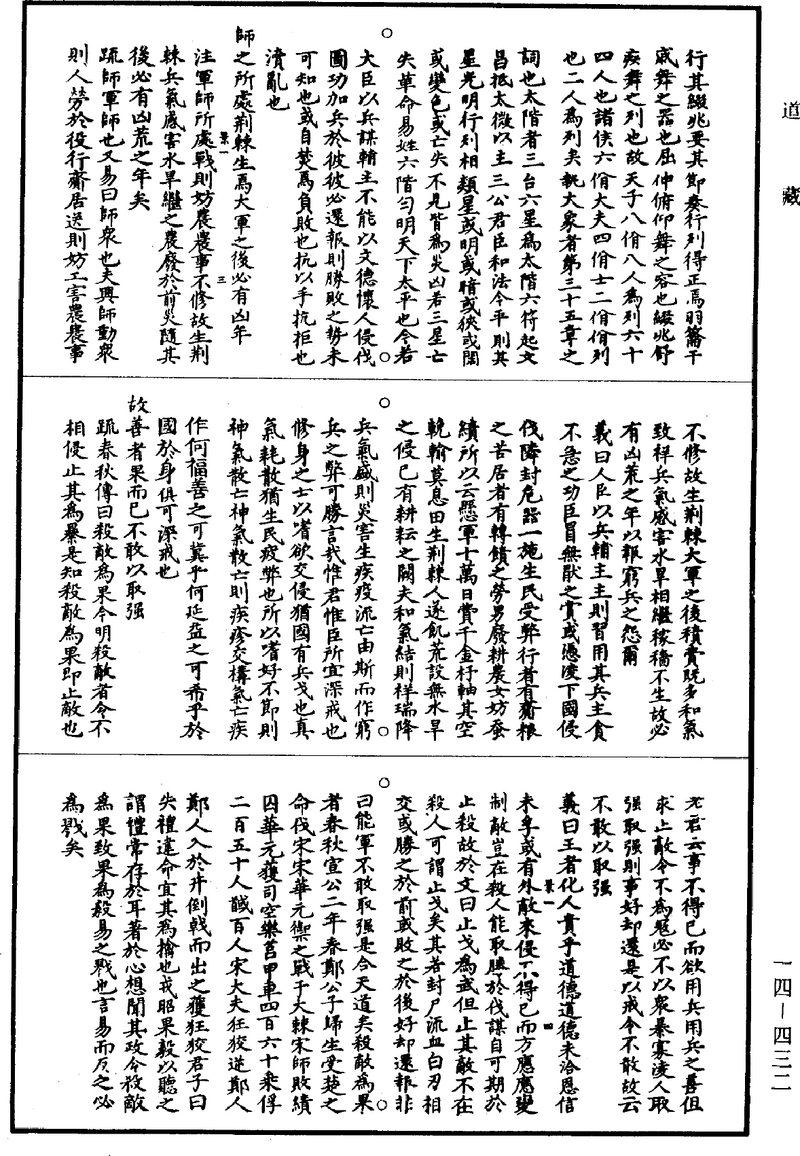 道藏
行其綴兆要其節奏行列得正焉羽籥干
戚舞之器也屈伸俯仰舞之容也綴兆舒
疾舞之列也故天子八佾八人為列六十
四人也諸侯六佾大夫四佾士二佾佾列
也二人為列矣執大象者第三十五章之
詞也太階者三台六星為太階六符起文
昌抵太微以主三公君臣和法令平則其
星光明行列相類星或明或暗或狹或闊
或變色或亡失不見皆為災凶若三星亡
失革命易姓六階勻明天下太平也今若
大臣以兵謀輔主不能以文德懷人侵伐
圖功加兵於彼彼必還報則勝敗之勢未
可知也或自焚焉負敗也抗以手抗拒也
潰亂也
師之所處荊棘生焉大軍之後必有凶年
注軍師所處戰則妨農農事不修故生荊
棘兵氣感害水旱繼之農廢於前災隨其
後必有凶荒之年矣
疏師軍師也又易曰師衆也夫興師動衆
則人勞於役行齎居送則妨工害農農事
景一
三
不修故生荊棘大軍之後積費既多和氣
致祥兵氣感害水旱相繼稼穡不生故必
有凶荒之年以報窮兵之怨爾
義曰人臣以兵輔主主則習用其兵主貪
不急之功臣冒無猒之賞或憑凌下國侵
伐隣封危器一施生民受弊行者有齎糧
之苦居者有轉饋之勞男廢耕農女妨蚕
績所以云懸軍十萬日費千金杼軸其空
輓輸莫息田生荊棘人遂飢荒設無水旱
之侵已有耕耘之闕夫和氣結則祥瑞降
兵氣盛則災害生疾疫流亡由斯而作窮
兵之弊可勝言哉惟君惟臣所宜深戒也
修身之士以嗜欲交侵猶國有兵戈也真
氣耗散猶生民疲弊也所以嗜好不節則
神氣散亡神氣散亡則疾疹交構氣亡疾
作何福善之可冀乎何延益之可希乎於
國於身俱可深戒也
故善者果而已不敢以取强
疏春秋傳曰殺敵為果今明殺敵者令不
相侵止其為暴是知殺敵為果即止敵也
老君云事不得已而欲用兵用兵之善但
求止敵令不為寇必不以衆暴寡凌人取
强取强則事好却還是以戒令不敢故云
不敢以取强
義曰王者化人貴乎道德道德未洽恩信
未孚或有外敵來侵不得已而方應應變
制敵豈在殺人能取勝於伐謀自可期於
止殺故於文曰止戈為武但止其敵不在
殺人可謂止戈矣其若封尸流血白刃相
交或勝之於前或敗之於後好却還報非
景一
四
曰能軍不敢取强是合天道矣殺敵為果
者春秋宣公二年春鄭公子歸生受楚之
命伐宋宋華元禦之戰于大棘宋師敗績
囚華元獲司空樂莒甲車四百六十乘俘
二百五十人馘百人宋大夫狂狡逆鄭人
鄭人入於井倒戟而出之獲狂狡君子曰
失禮違命宜其為擒也戎昭果毅以聽之
謂禮常存於耳著於心想聞其政令殺敵
為果致果為毅易之戮也言易而反之必
為戮矣
一四—四三二